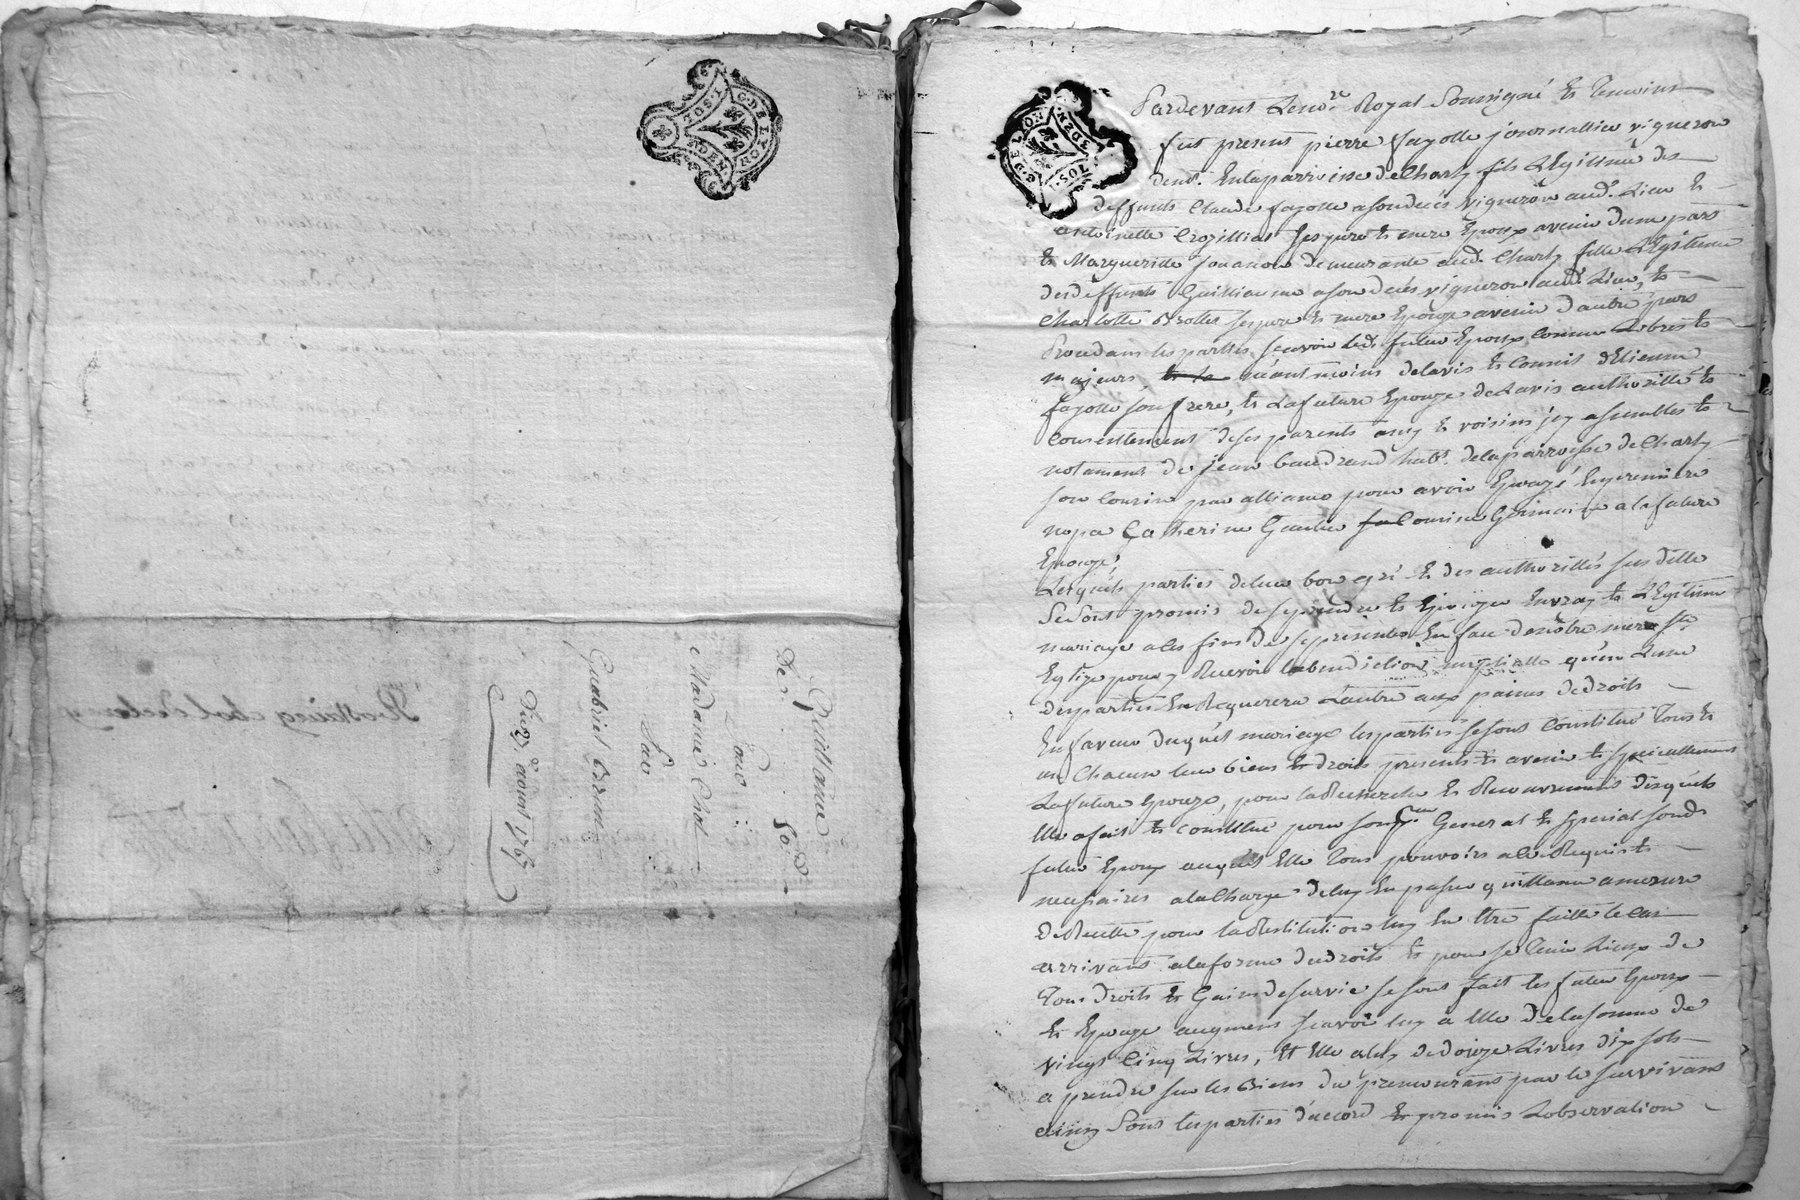 Quittance
De . . 80.#
Pour :
Madame Chol
Sur
Gabriel Crozier
Du 27e. aoust 1767
G. DE LYON
I. SOL
G. DE LYON
I. SOL
Pardevant Le nore. Royal Soussigné Et Temoins
fut present pierre fayolle journallier vigneron
demt. En la parroisse de Charly fils Legitime des
deffunts Claude fayolle a son deces vigneron aud. Lieu Et
antoinette Crozilliat ses pere Et mere Epoux avenir d'une part
Et Margueritte Jouanon demeurante aud. Charly fille Legitime
des deffunts Guilliaume a son decés vigneron aud. Lieu, Et
Charlotte Brottet ses pere Et mere Epouze avenir d'autre part
Procedans les parties scavoir led. futur Epoux comme Libre Et
majeur, Et la néantmoins de l'avis Et Conseil d'Etienne
fayolle son frere, Et La future Epouze de L'avis authoritté Et
Consentement de ses parents amy Et voisins jcy assemblés Et
notament de jean baudrand habt. de la parroisse de Charly
son Cousin par alliance pour avoir Epouzé En premiere
nopce Catherine Gautier sa Cousine Germaine a la future
Epouze,
Lesquels parties de leur bon gré Et des authorittés susdittes
Se Sont promis de se prendre Et Epouzer En vray Et Legitime
mariage a les fins de se presenter En face de nôtre mere Ste.
Eglize pour y Recevoir la benediction nuptialle qu'en L'une
des parties En Requerera L'autre aux peines de droits
En faveur duquel mariage les parties se sont Constitué Tous Et
un Chacun leur biens Et droits presents Et avenir Et specialement
La future Epouze, pour la Recherche Et Recouvrement desquels
Elle a fait Et Constitué pour son pr. General Et special sond.
futur Epoux auquel Elle Tous pouvoirs a ce Requis Et
necessaires a la Charge de luy En passer quittance a mezure
de Recette pour la Restitution luy En Etre faitte le Cas
arrivant a la forme du droits Et pour se Tenir Lieux de
Tous droits Et Gains de survie se sont fait les futur Epoux
Et Epouze augment scavoir luy a Elle de la somme de
vingt Cinq Livres, Et Elle a luy de douze Livres dix sols
a prendre sur les Biens du premourant par le survivant
ainsy Sont les parties d'accord Et promis L'observation